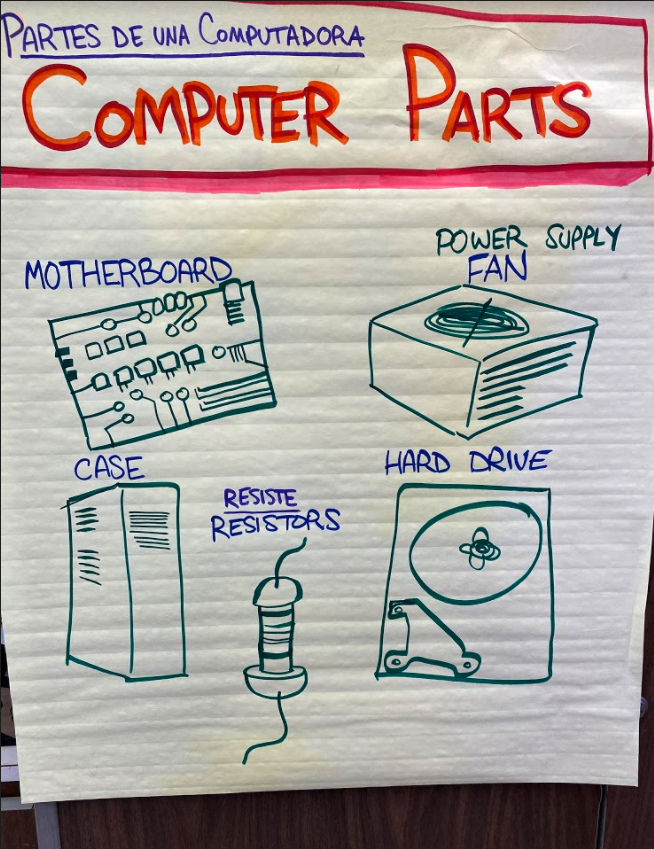 PARTES DE UNA COMPUTADORA
COMPUTER PARTS
MOTHERBOARD
POWER SUPPLY
FAN
CASE
RESISTE
RESISTORS
HARD DRIVE